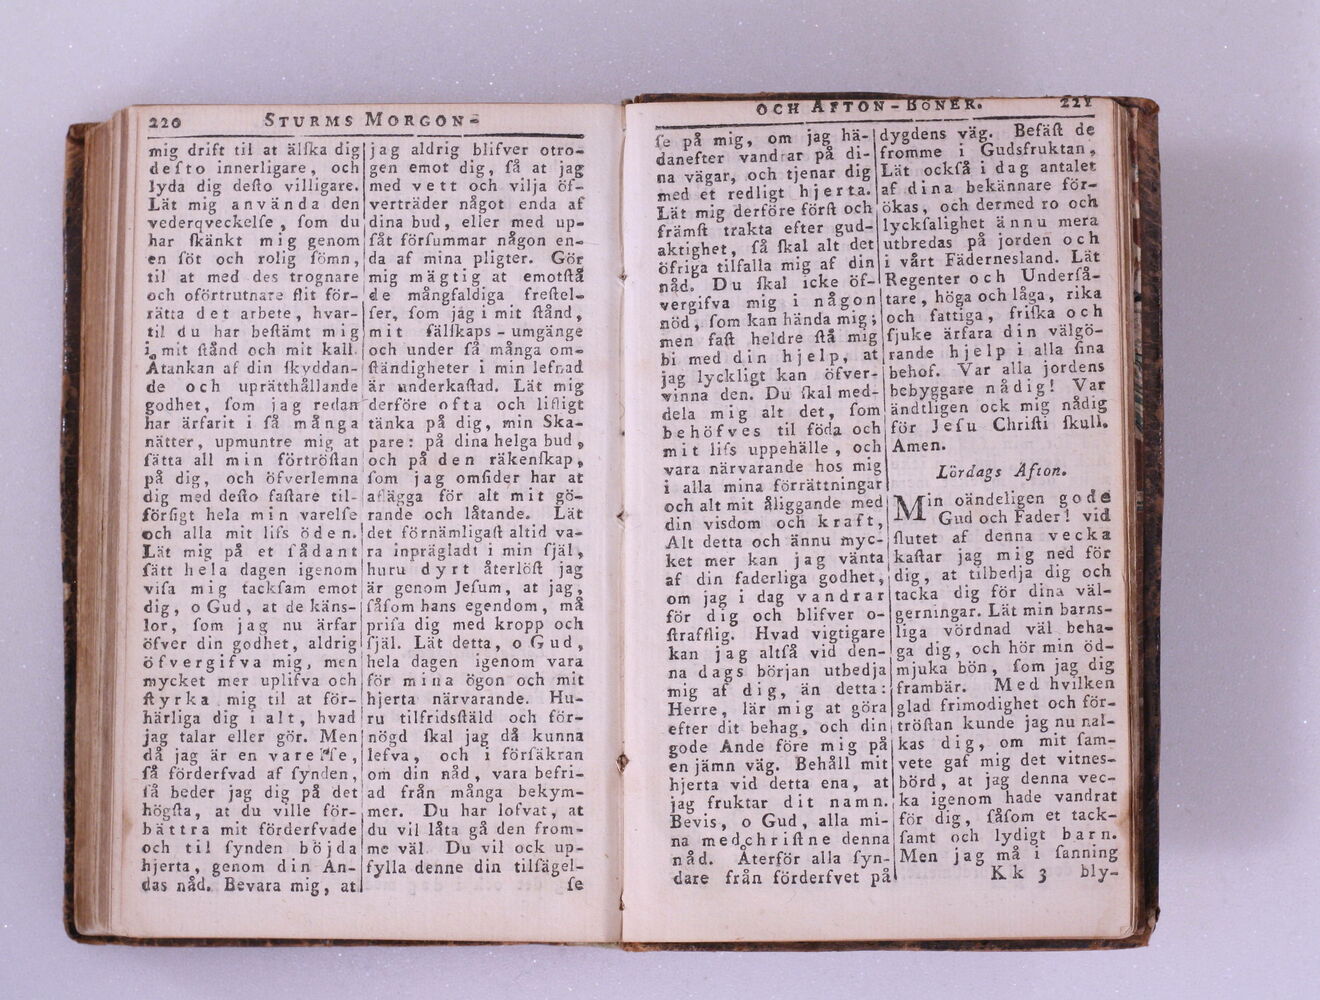 220
STURMS MORGON-
mig drift til at älſka dig
deſto innerligare, och
lyda dig deſto villigare.
Lät mig använda den
vederqveckelſe, ſom du
har ſkänkt mig genom
en ſöt och rolig ſömn,
til at med des trognare
och oförtrutnare flit för-
rätta det arbete, hvar-
til du har beſtämt mig
i mit ſtånd och mit kall.
Åtankan af din ſkyddan-
de och uprätthållande
godhet, ſom jag redan
har ärfarit i ſå många
nätter, upmuntre mig at
ſätta all min förtröſtan
på dig, och öfverlemna
dig med deſto faſtare til-
förſigt hela min varelſe
och alla mit lifs öden.
Lät mig på et ſådant
ſätt hela dagen igenom
viſa mig tackſam emot
dig, o Gud, at de käns-
lor, ſom jag nu ärfar
öfver din godhet, aldrig
öfvergifva mig, men
mycket mer uplifva och
ſtyrka mig til at för-
härliga dig i alt, hvad
jag talar eller gör. Men
då jag är en varelſe,
ſå förderfvad af ſynden,
ſå beder jag dig på det
högſta, at du ville för-
bättra mit förderfvade
och til ſynden böjda
hjerta, genom din An-
das nåd. Bevara mig, at
jag aldrig blifver otro-
gen emot dig, ſå at jag
med vett och vilja öf-
verträder något enda af
dina bud, eller med up-
ſåt förſummar någon en-
da af mina pligter. Gör
mig mägtig at emotſtå
de mångfaldiga freſtel-
ſer, ſom jag i mit ſtånd,
mit fälſkaps-umgänge
och under ſå många om-
ſtändigheter i min lefnad
är underkaſtad. Lät mig
derföre ofta och lifligt
tänka på dig, min Ska-
pare: på dina helga bud,
och på den räkenſkap,
ſom jag omſider har at
aflägga för alt mit gö-
rande och låtande. Lät
det förnämligaſt altid va-
ra inprägladt i min ſjäl,
huru dyrt återlöſt jag
är genom Jeſum, at jag,
ſåſom hans egendom, må
priſa dig med kropp och
ſjäl. Lät detta, o Gud,
hela dagen igenom vara
för mina ögon och mit
hjerta närvarande. Hu-
ru tilfridsſtäld och för-
nögd ſkal jag då kunna
lefva, och i förſäkran
om din nåd, vara befri-
ad från många bekym-
mer. Du har lofvat, at
du vil låta gå den from-
me väl. Du vil ock up-
fylla denne din tilſägel-
ſe
OCH AFTON-BÖNER.
221
ſe på mig, om jag hä-
danefter vandrar på di-
na vägar, och tjenar dig
med et redligt hjerta.
Lät mig derföre förſt och
främſt trakta efter gud-
aktighet, ſå ſkal alt det
öfriga tilfalla mig af din
nåd. Du ſkal icke öf-
vergifva mig i någon
nöd, ſom kan hända mig;
men faſt heldre ſtå mig
bi med din hjelp, at
jag lyckligt kan öfver-
vinna den. Du ſkal med-
dela mig alt det, ſom
behöfves til föda och
mit lifs uppehälle, och
vara närvarande hos mig
i alla mina förrättningar
och alt mit åliggande med
din visdom och kraft,
Alt detta och ännu myc-
ket mer kan jag vänta
af din faderliga godhet,
om jag i dag vandrar
för dig och blifver o-
ſtrafflig. Hvad vigtigare
kan jag altſå vid den-
na dags början utbedja
mig af dig, än detta:
Herre, lär mig at göra
efter dit behag, och din
gode Ande före mig på
en jämn väg. Behåll mit
hjerta vid detta ena, at
jag fruktar dit namn.
Bevis, o Gud, alla mi-
na medchriſtne denna
nåd. Återför alla ſyn-
dare från förderfvet på
dygdens väg. Befäſt de
fromme i Gudsfruktan,
Lät ockſå i dag antalet
af dina bekännare för-
ökas, och dermed ro och
lyckſalighet ännu mera
utbredas på jorden och
i vårt Fädernesland. Lät
Regenter och Underſå-
tare, höga och låga, rika
och fattiga, friſka och
ſjuke ärfara din välgö-
rande hjelp i alla ſina
behof. Var alla jordens
bebyggare nådig! Var
ändtligen ock mig nådig
för Jeſu Chriſti ſkull.
Amen.
Lördags Afton.
Min oändeligen gode
Gud och Fader! vid
ſlutet af denna vecka
kaſtar jag mig ned för
dig, at tilbedja dig och
tacka dig för dina väl-
gerningar. Lät min barns-
liga vördnad väl beha-
ga dig, och hör min öd-
mjuka bön, ſom jag dig
frambär. Med hvilken
glad frimodighet och för-
tröſtan kunde jag nu nal-
kas dig, om mit ſam-
vete gaf mig det vitnes-
börd, at jag denna vec-
ka igenom hade vandrat
för dig, ſåſom et tack-
ſamt och lydigt barn.
Men jag må i ſanning
Kk 3 bly-